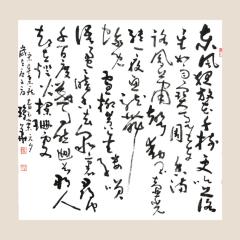 东风夜放花千树更吹落
星如雨宝马雕车香满
路凤箫声动玉壶光
转一夜鱼龙舞
蛾儿雪柳黄金缕笑
语盈盈暗香去众里寻他
千百度蓦然回首那人
却在灯火阑珊处